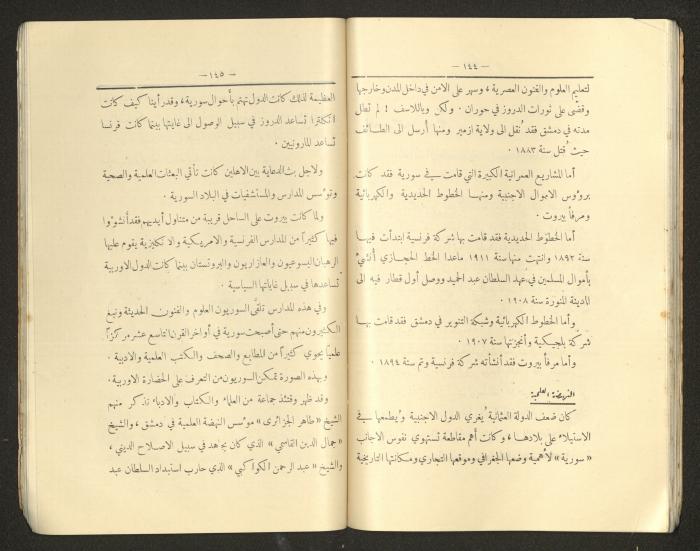 — ١٤٤ —
لتعليم العلوم والفنون العصرية ، وسهر على الامن في داخل المدن وخارجها
وقضى على ثورات الدروز في حوران . ولكن وياللاسف ! لم تطل
مدته في دمشق فقد نُقل الى ولاية ازمير ومنها أرسل الى الطائف
حيث قُتل سنة ١٨٨٣ .
أما المشاريع العمرانية الكبيرة التي قامت في سورية فقد كانت
برؤوس الاموال الاجنبية ومنها الخطوط الحديدية والكهربائية
ومرفأ بيروت .
أما الخطوط الحديدية فقد قامت بها شركة فرنسية ابتدأت فيها
سنة ١٨٩٢ وانتهت منها سنة ١٩١١ ماعدا الخط الحجازي أنشئ
بأموال المسلمين في عهد السلطان عبد الحميد ووصل أول قطار فيه الى
المدينة المنورة سنة ١٩٠٨ .
وأما الخطوط الكهربائية وشبكة التنوير في دمشق فقد قامت بها
شركة بلجيكية وأنجزتها سنة ١٩٠٧ .
وأما مرفأ بيروت فقد أنشأته شركة فرنسية وتم سنة ١٨٩٤ .
النهضة العلمية
كان ضعف الدولة العثمانية يُغري الدول الاجنبية ويُطمعها في
الاستيلاء على بلادها ، وكانت أهم مقاطعة تستهوي نفوس الاجانب
« سورية » لأهمية وضعها الجغرافي وموقعها التجاري ومكانتها التاريخية
— ١٤٥ —
العظيمة لذلك كانت الدول تهتم بأحوال سورية ، وقد رأينا كيف كانت
انكلترا تساعد الدروز في سبيل الوصول الى غايتها بينما كانت فرنسا
تساعد المارونيين .
ولاجل بث الدعاية بين الاهلين كانت تأتي البعثات العلمية والصحية
وتؤسس المدارس والمستشفيات في البلاد السورية .
ولما كانت بيروت على الساحل قريبة من متناول أيديهم فقد أنشؤوا
فيها كثيراً من المدارس الفرنسية والامريكية والانكليزية يقوم عليها
الرهبان اليسوعيون والعازاريون والبروتستان بينما كانت الدول الاوربية
تساعدها في سبيل غاياتها السياسية .
وفي هذه المدارس تلقَّى السوريون العلوم والفنون الحديثة ونبغ
الكثيرون منهم حتى أصبحت سورية في أواخر القرن التاسع عشر مركزاً
علمياً يحوي كثيراً من المطابع والصحف والكتب العلمية والادبية .
وبهذه الصورة تمكن السوريون من التعرف على الحضارة الاوربية .
وقد ظهر وقتئذ جماعة من العلماء والكتاب والادباء نذكر منهم
الشيخ « طاهر الجزائري » مؤسس النهضة العلمية في دمشق ، والشيخ
« جمال الدين القاسمي » الذي كان يجاهد في سبيل الاصلاح الديني ،
والشيخ « عبد الرحمن الكواكبي » الذي حارب استبداد السلطان عبد